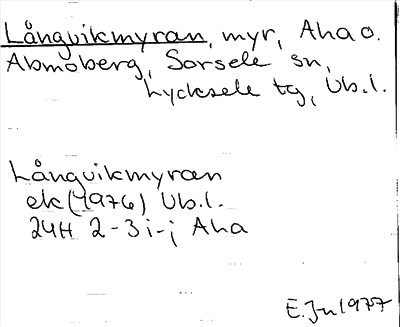 Långvikmyran, myr, Aha o.
Abmoberg, Sorsele sn,
Lycksele tg, Vb.l.
Långvikmyran
ek (1976) Vb.l.
24H 2-3i-j Aha
E.Jn 1977